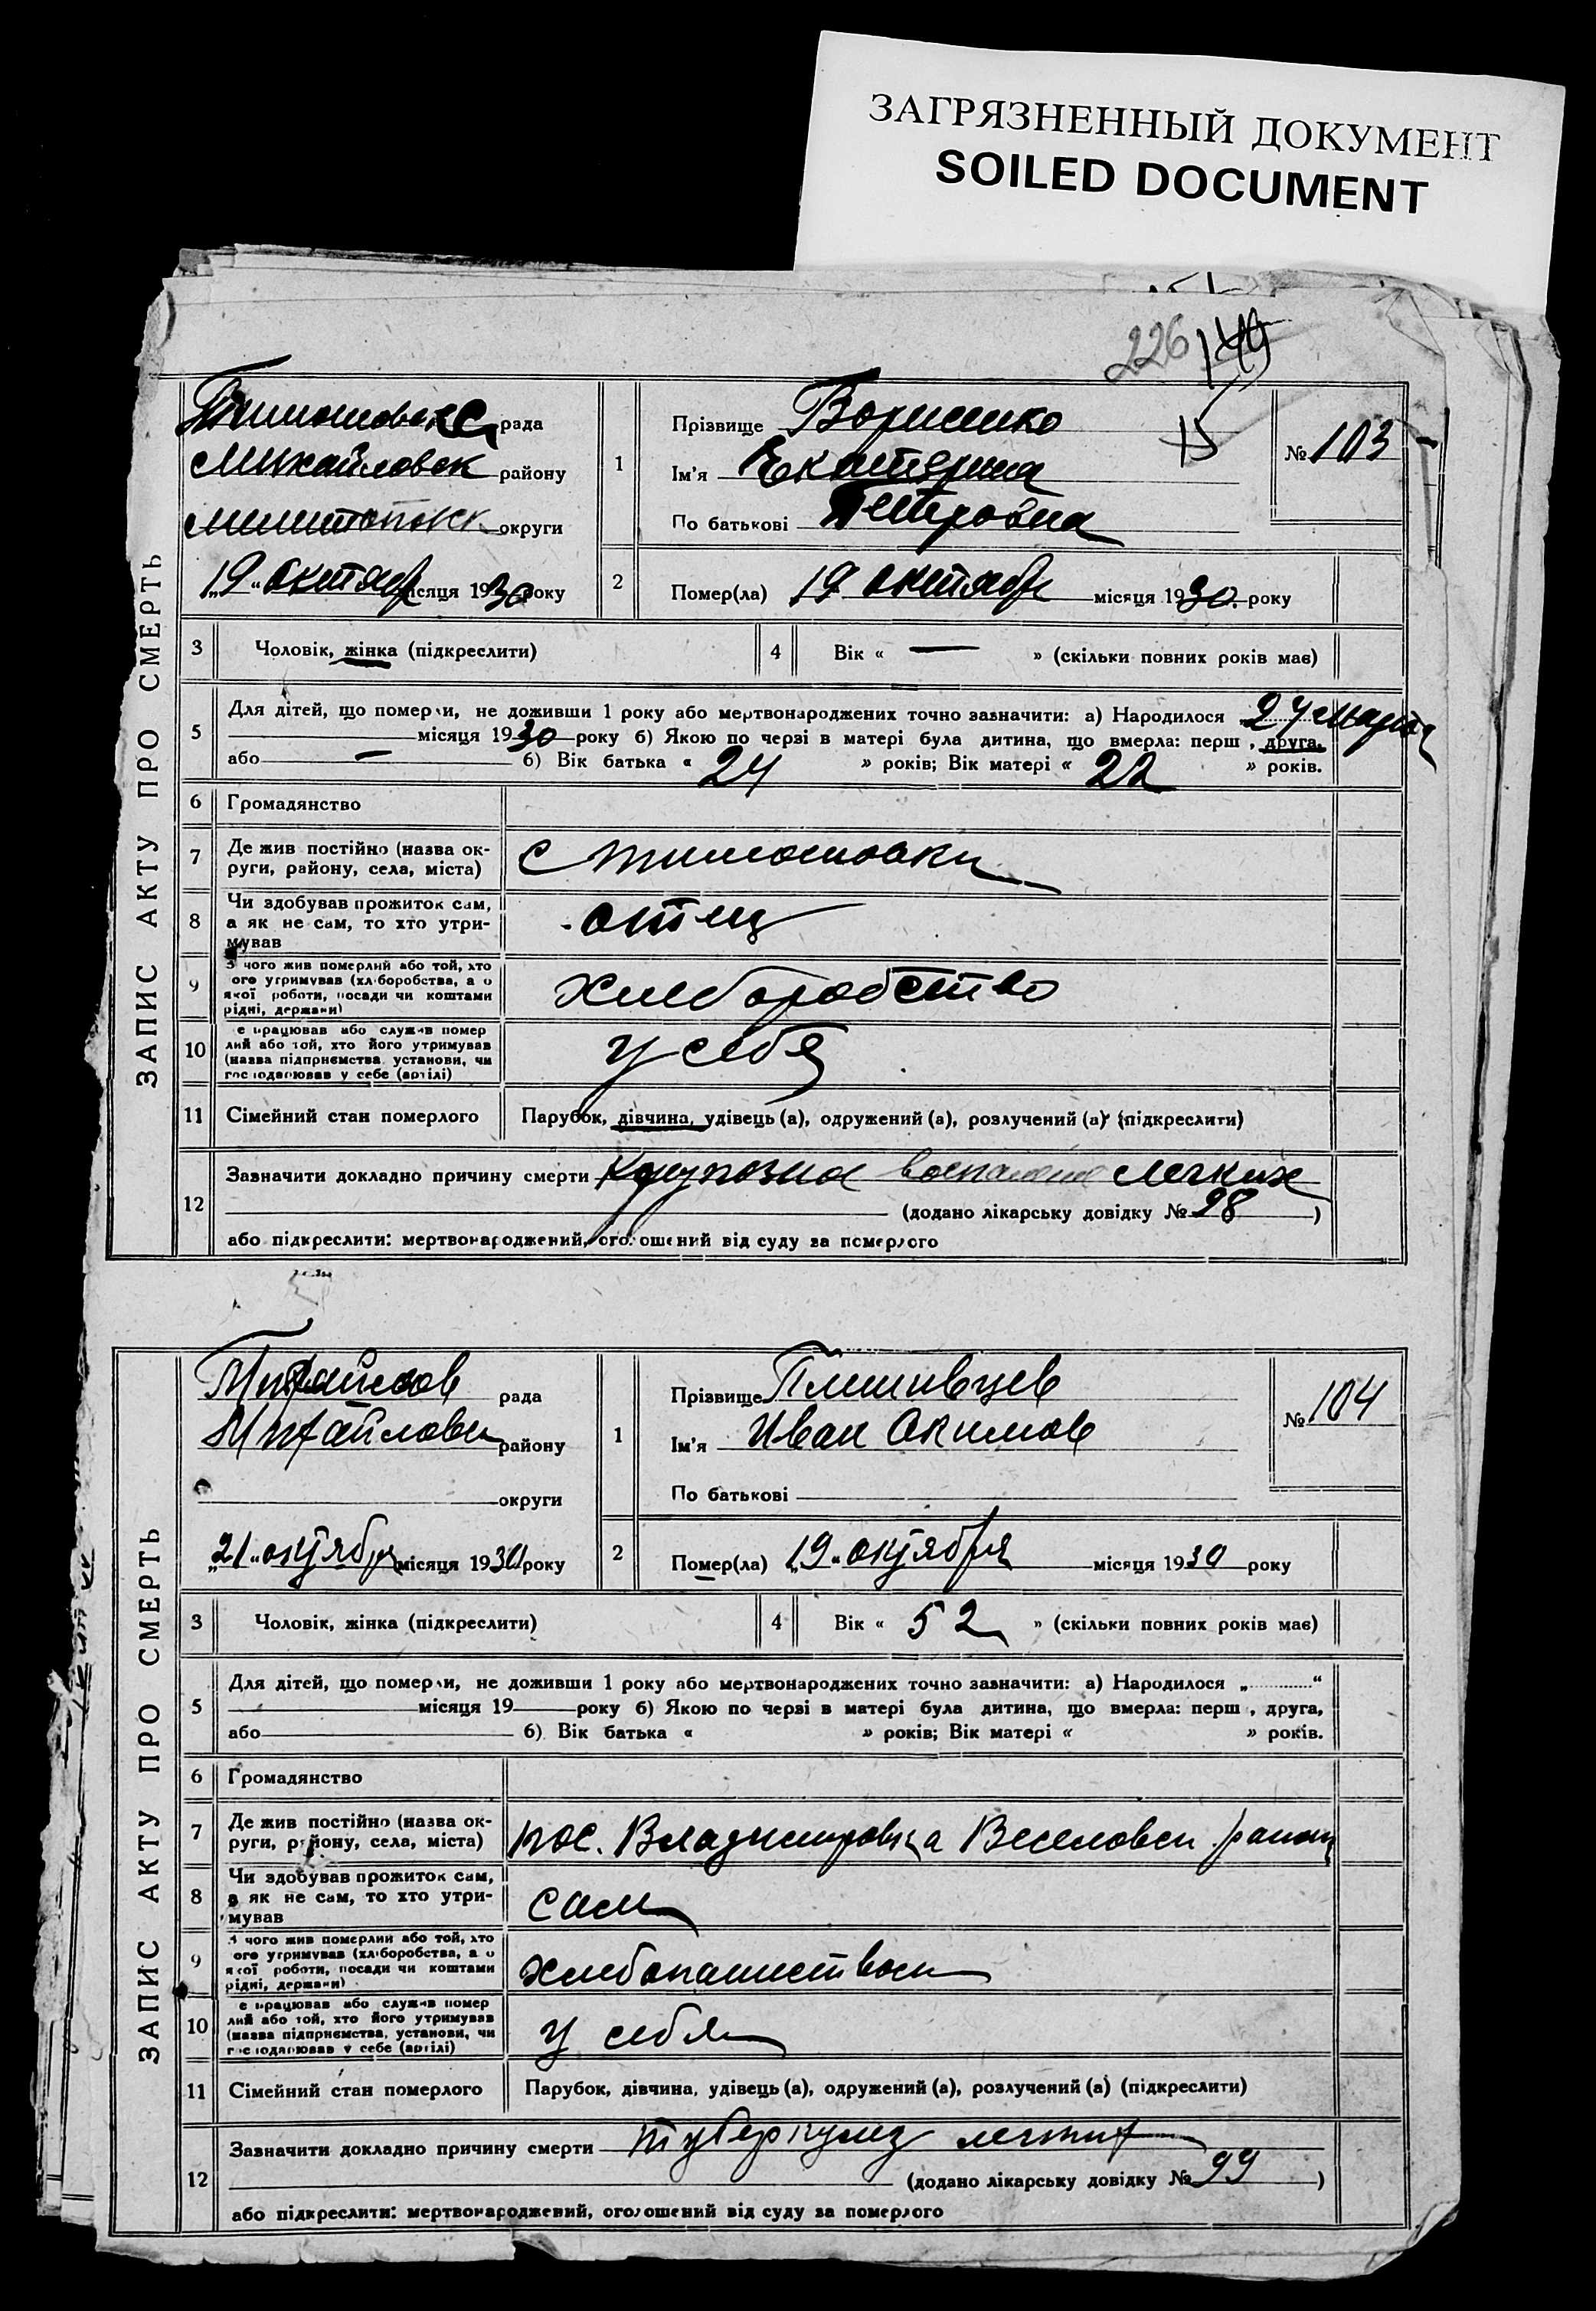 ЗАГРЯЗНЕННЫЙ ДОКУМЕНТ
SOILED DOCUMENT
226 149
ЗАПИС АКТУ ПРО СМЕРТЬ
Тимошовск рада
Михайловск району
округи
„19“ октябр місяця 1930 року
1
Прізвище Борисенко
Ім'я Екатерина
По батькові Петровна
№ 103
2
Помер(ла) 19 октябр місяця 1930 року
3 Чоловік, жінка (підкреслити)
4 Вік « — » (скільки повних років має)
5 Для дітей, що померли, не доживши 1 року або мертвонароджених точно зазначити: а) Народилося 24 марта
місяця 1930 року б) Якою по черзі в матері була дитина, що вмерла: перш , друга,
або — б) Вік батька « 24 » років; Вік матері « 22 » років.
6 Громадянство
7 Де жив постійно (назва ок-
руги, району, села, міста) с Тимошовки
8 Чи здобував прожиток сам,
а як не сам, то хто утри-
мував отец
9 З чого жив померлий або той, хто
ого утримував (хліборобства, а о
якої роботи, посади чи коштами
рідні, держави) хлеборобство
10 е працював або служив помер
лий або той, хто його утримував
(назва підприємства установи, чи
господарював у себе (артілі) у себя
11 Сімейний стан померлого Парубок, дівчина, удівець (а), одружений (а), розлучений (а) (підкреслити)
12 Зазначити докладно причину смерти Крупозна воспаление легких
(додано лікарську довідку № 98 )
або підкреслити: мертвонароджений, оголошений від суду за померлого
ЗАПИС АКТУ ПРО СМЕРТЬ
Михайлов рада
Михайловск району
округи
„21“ октября місяця 1930 року
1
Прізвище Плешивцев
Ім'я Иван Акимов
По батькові
№ 104
2
Помер(ла) „19“ октября місяця 1930 року
3 Чоловік, жінка (підкреслити)
4 Вік « 52 » (скільки повних років має)
5 Для дітей, що померли, не доживши 1 року або мертвонароджених точно зазначити: а) Народилося „ “
місяця 19 року б) Якою по черзі в матері була дитина, що вмерла: перш , друга,
або б) Вік батька « » років; Вік матері « » років.
6 Громадянство
7 Де жив постійно (назва ок-
руги, району, села, міста) пос. Владимировка Веселовск. району
8 Чи здобував прожиток сам,
а як не сам, то хто утри-
мував сам
9 З чого жив померлий або той, хто
ого утримував (хліборобства, а о
якої роботи, посади чи коштами
рідні, держави) хлебопашеством
10 е працював або служив помер
лий або той, хто його утримував
(назва підприємства, установи, чи
господарював у себе (артілі) у себя
11 Сімейний стан померлого Парубок, дівчина, удівець (а), одружений (а), розлучений (а) (підкреслити)
12 Зазначити докладно причину смерти туберкулез легких
(додано лікарську довідку № 99 )
або підкреслити: мертвонароджений, оголошений від суду за померлого